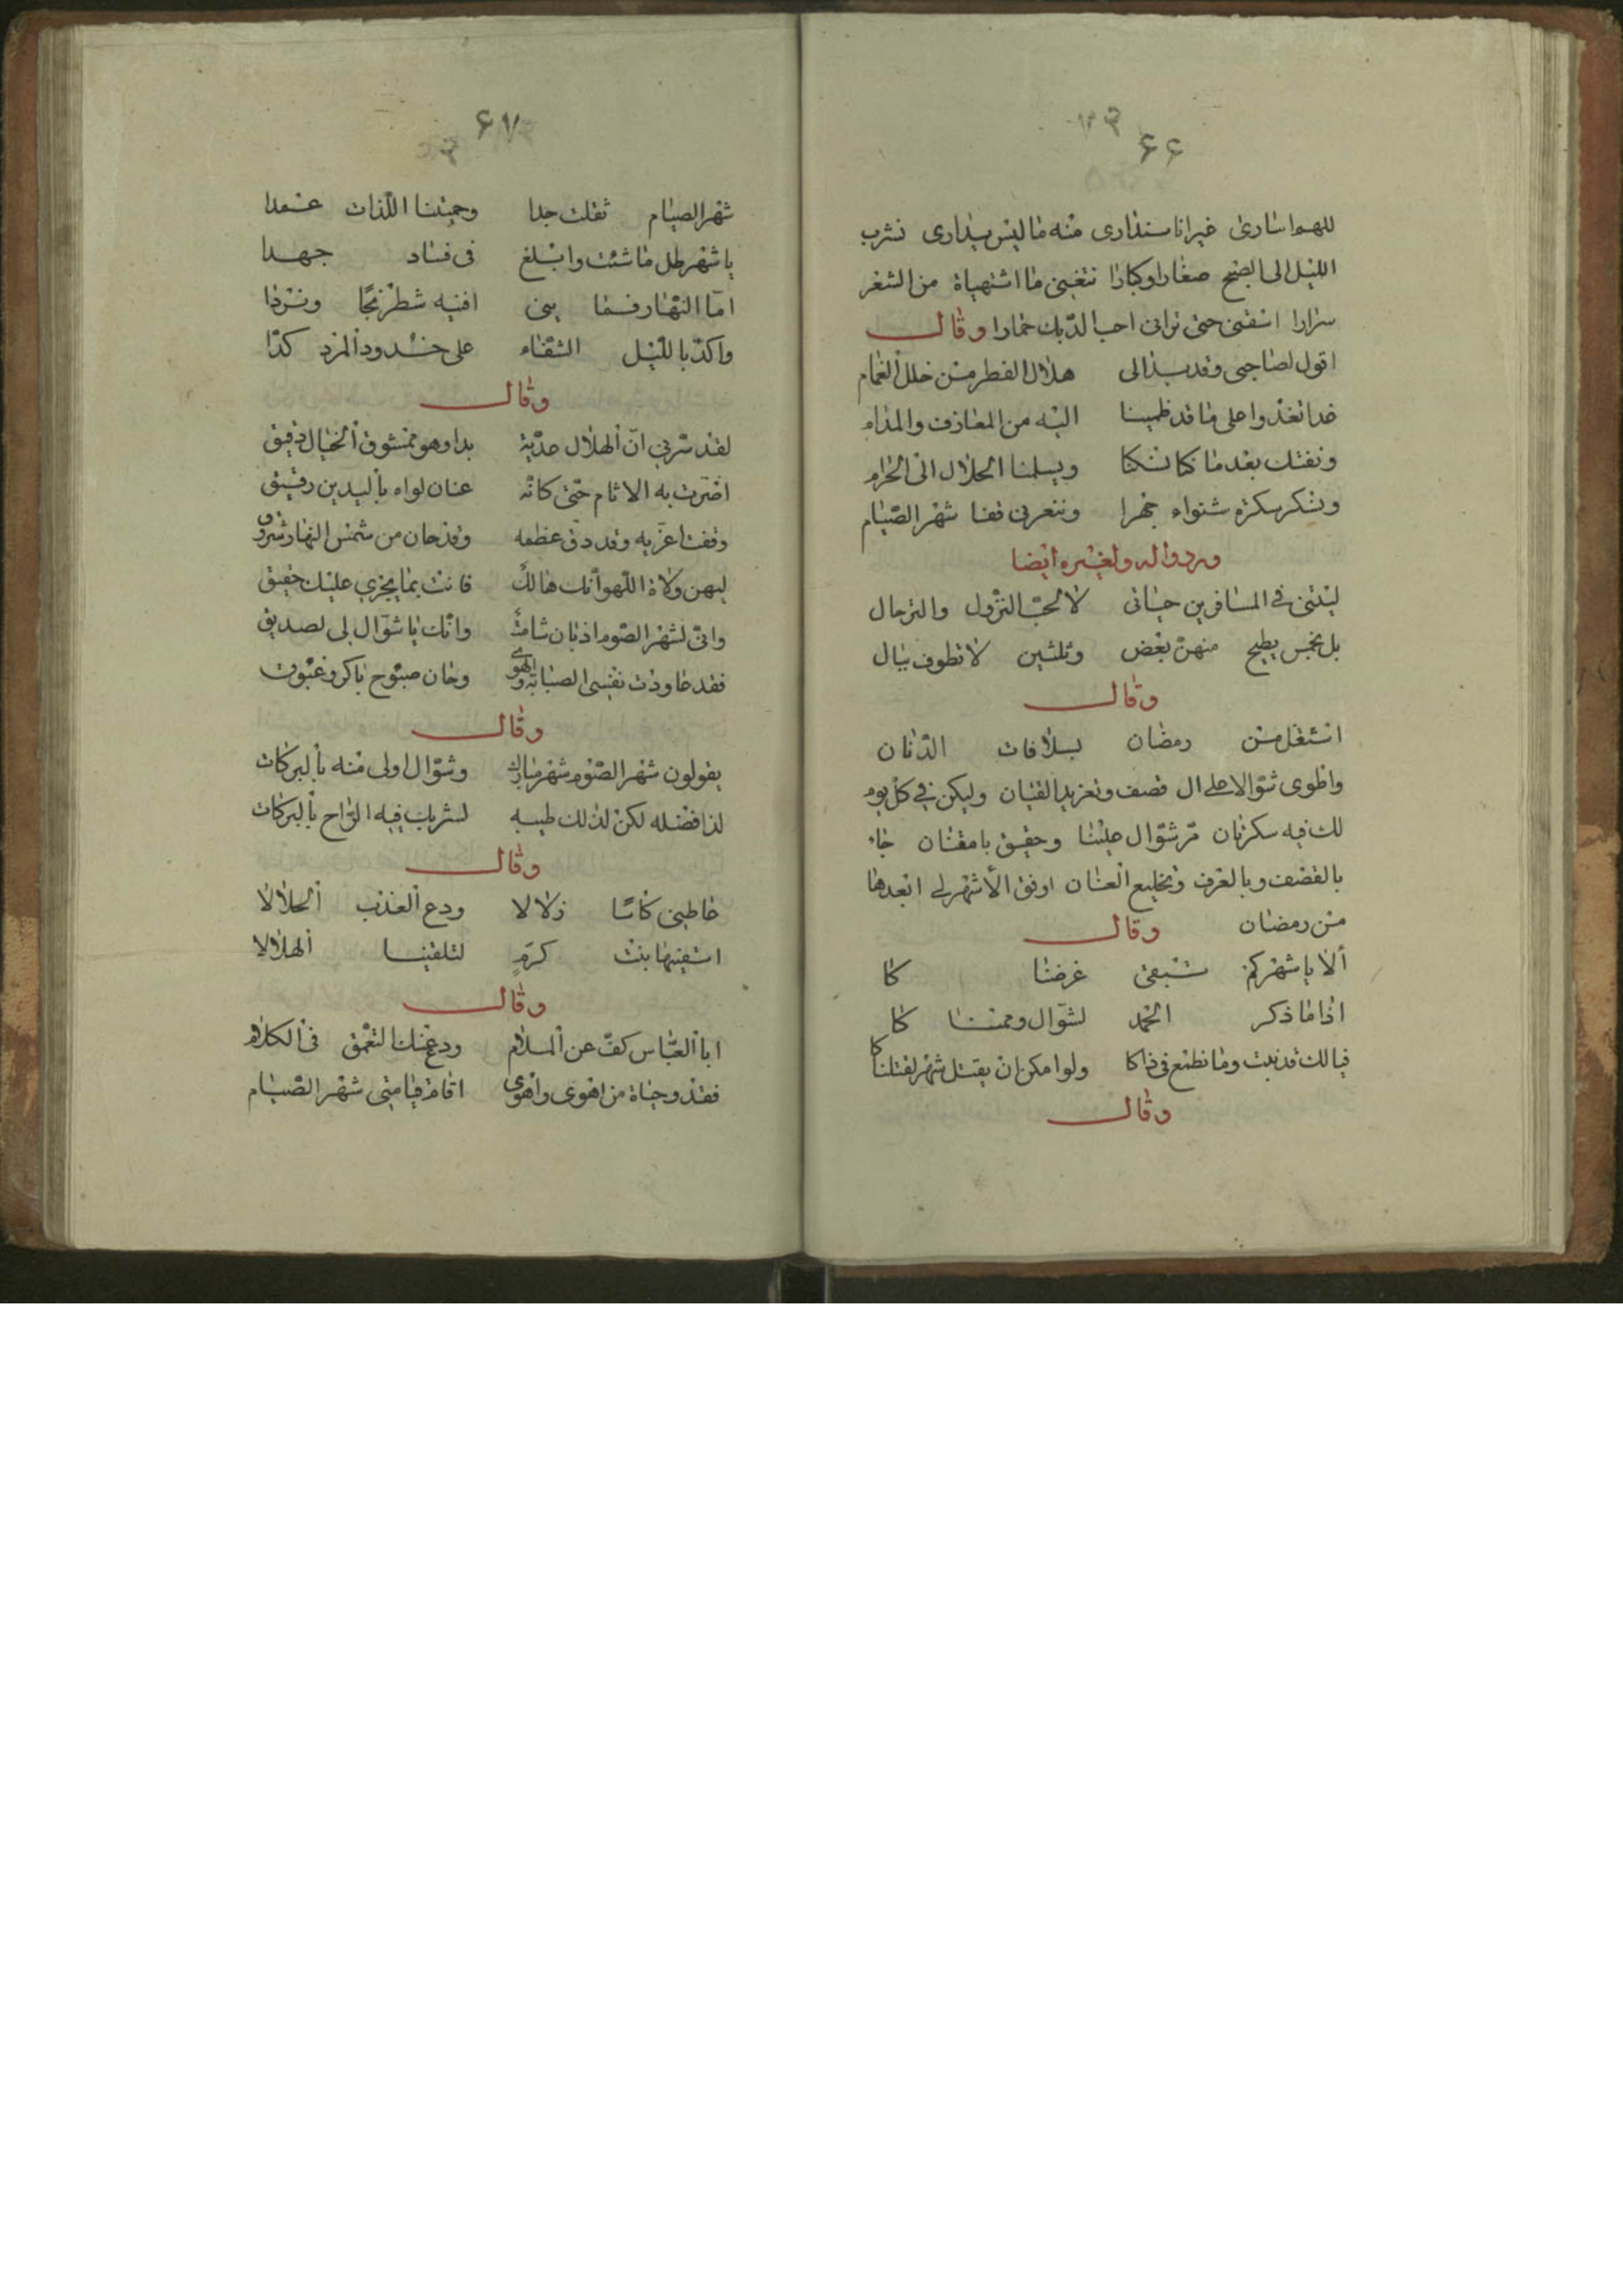 ۶۶
للهو اسارى غير انا سنذارى منه ما ليس بذارى نشرب
الليل الى الصبح صغارا وكبارا نتغنى ما اشتهياة من الشعر
سرارا اسقنى حتى ترانى احسب الديك حمارا وقال
اقول لصاحبى وقد بدالى هلال الفطر من خلل الغمام
غدا نغدوا على ما قد ظمينا اليه من المعازف والمدام
ونفتك بعد ما كنا نسكنا ويسلمنا الحلال الى الحرام
ونسكر سكرة شنواء جهرا وننعر فى قفا شهر الصيام
وله ولغيره ايضا
ليتنى في المسافرين حياتى لا لحب النزول والترحال
بل لخمس يطيح منهن بعض وثلثين لا تطوف ببال
وقال
استغل من رمضان بسلافات الدنان
واطوى شوالا على ال قصف وتغريد القيان وليكن في كل يوم
لك فيه سكرتان مر شوال علينا وحقيق بامتنان جاء
بالقصف وبالعزف وتخليع العنان اوفق الأشهر لى ابعدها
من رمضان وقال
ألا يا شهر كم تبقى غرضنا كا
اذا ما ذكر الحمد لشوال وممنا كا
فيالك قد نبت وما نطمع فى ذاكا ولو امكن ان يقتل شهر لقتلنا كا
وقال
۶۷
شهر الصيام ثقلت جدا وحميتنا اللذات عمدا
يا شهر طل ما شئت وابلغ فى فساد جهدا
اما النهار فما بينى افنيه شطرنجا ونردا
واكد بالليل الشقاء على خدود المرد كدا
وقال
لقد سرني ان الهلال عدية بدا وهو ممشوق الخيال دقيق
اضرت به الاثام حتى كانه عنان لواه باليدين رفيق
وقفت اعزيه وقد دق عظمه وقد حان من شمس النهار شروق
ليهن ولاة اللهو انك هالك فانت بما يجزي عليك حقيق
وانى لشهر الصوم اذ بان شامت وانك يا شوال لى لصديق
فقد عاودت نفسى الصبابة والهوى وحان صبوح باكر وغبوق
وقال
يقولون شهر الصوم شهر مبارك وشوال اولى منه بالبركات
لذا فضله لكن لذلك طيبه لشرباب فيه الراح بالبركات
وقال
عاطنى كاسا زلالا ودع العذب الحلالا
اسقنيها بنت كرم لتلقينا الهلالا
وقال
ابا العباس كف عن الملام ودع عنك التعمق فى الكلام
فقد وحياة من اهوى واهوى اقام قيامتى شهر الصيام